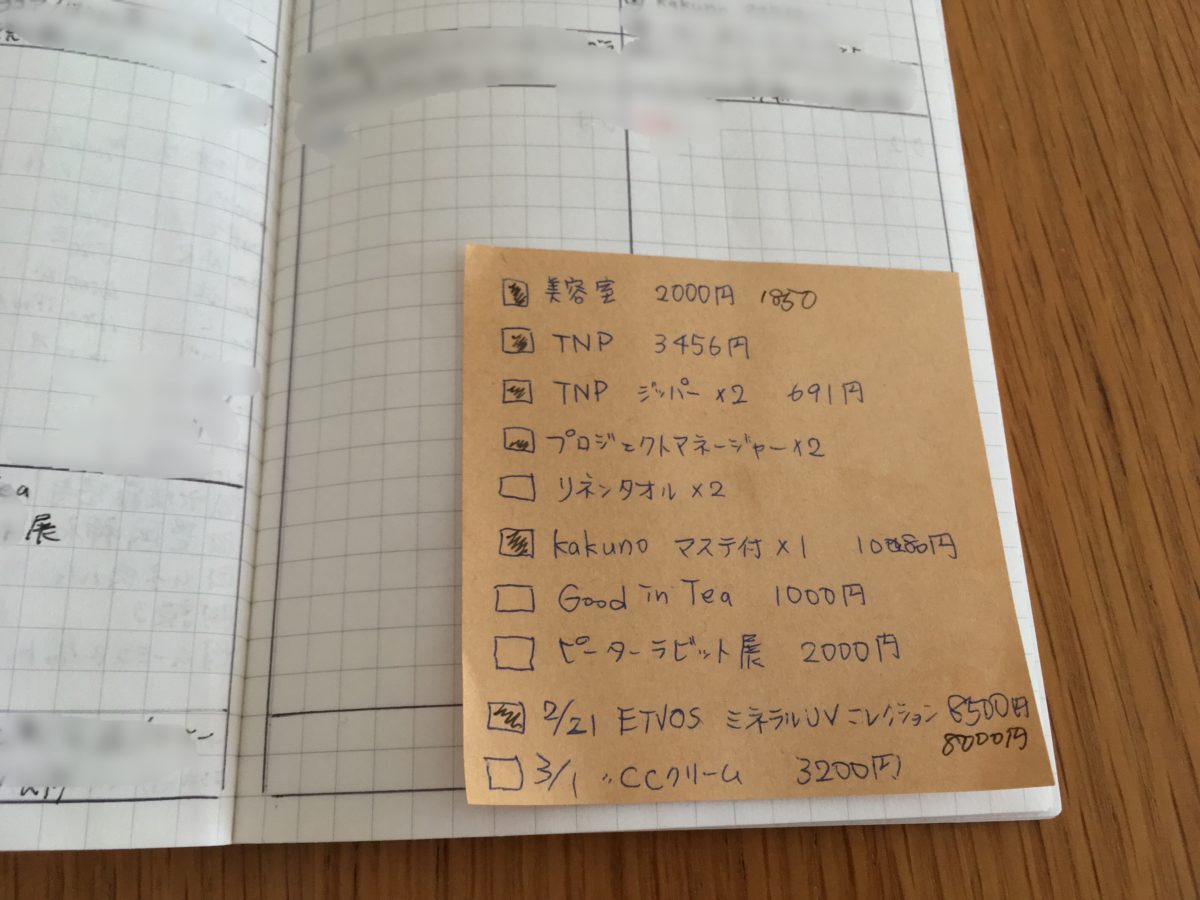 ea
展
美容室 2000円 1850
TNP 3456円
TNP ジッパー×2 691円
プロジェクトマネージャー×2
リネンタオル×2
kakuno マステ付×1
Good in Tea 1000円
ピーターラビット展 2000円
2/21 ETVOS ミネラルUVコレクション 8500円
8000円
3/1 〃CCクリーム 3200円